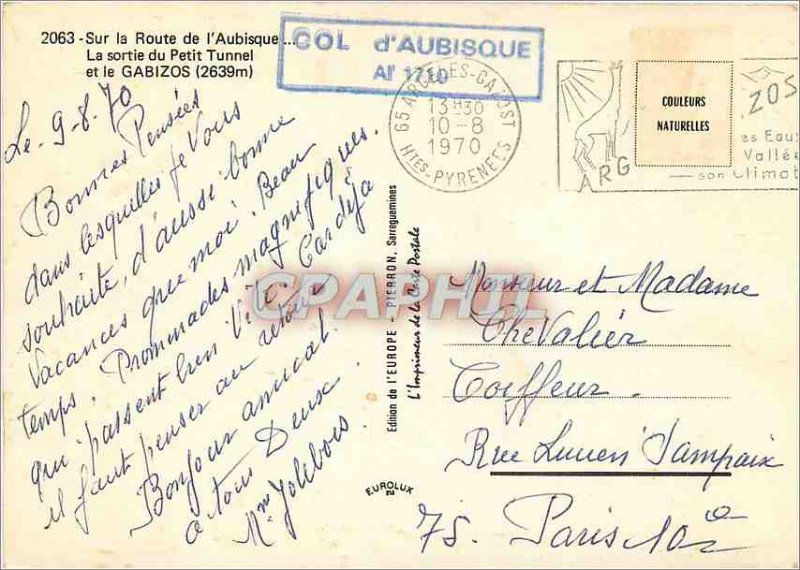 2063 - Sur la Route de l'Aubisque...
La sortie du Petit Tunnel
et le GABIZOS (2639m)
COL d'AUBISQUE
Alt 1710
65 ARGELES-GAZOST
13H30
10-8
1970
HTES-PYRENEES
ARG
ZOS
COULEURS
NATURELLES
es Eaux
Vallée
son Climat
Le 9-8-70
Bonnes Pensées
dans lesquelles je Vous
souhaite, d'aussi bonne
Vacances que moi. Beau
temps. Prommades magnifiques.
qui passent bien Vite. Cardéja
il faut penser au retour
Bonjour amical.
a tous Deux
Mme Jolibois
Edition de l'EUROPE - PIERRON, Sarreguemines
L'Imprimeur de la Carte Postale
EUROLUX
CPAPHIL
Monsieur et Madame
CheValier
Coiffeur.
Rue Lucien Sampaix
75. Paris 10e